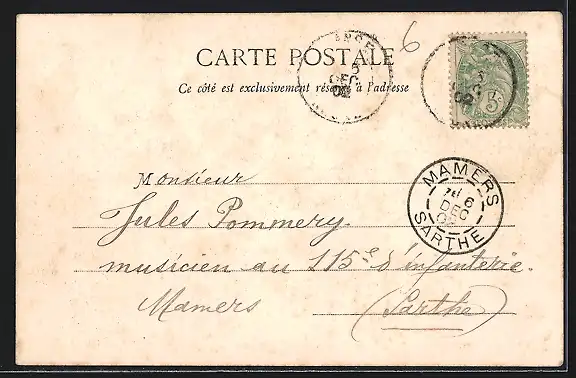 6
CARTE POSTALE
Ce côté est exclusivement réservé à l'adresse
5
DEC
02
MAMERS
6
DEC
02
SARTHE
Monsieur
Jules Pommery
musicien au 115e d'infanterie.
Mamers (Sarthe)